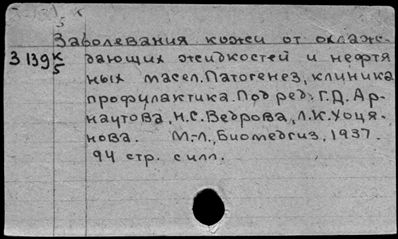 Заболевания кожи от охлаж-
3139 К/5 дающих жидкостей и нефтя
ных масел. Патогенез, клиника
профилактика. Под ред. Г.Д. Ар-
наутова, Н.С. Ведрова, Л.К. Хоця-
нова. М.-Л., Биомедгиз, 1937.
94 стр. с илл.